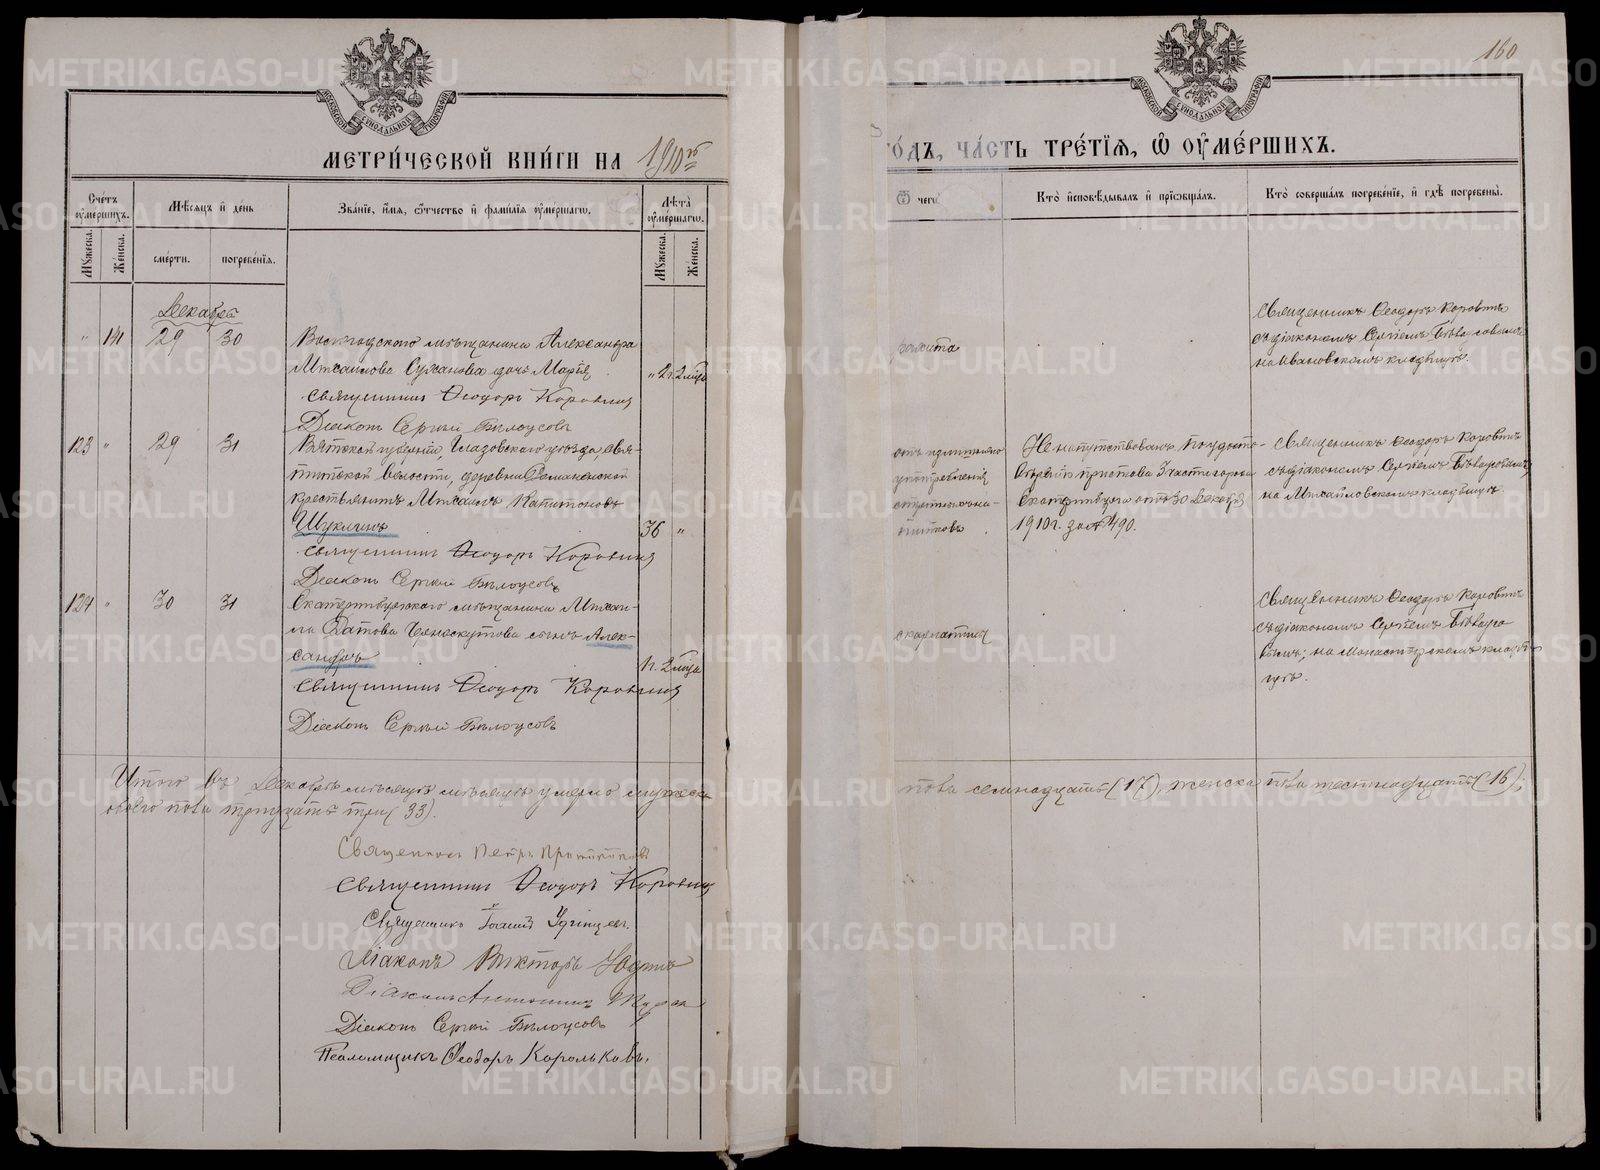 160
МЕТРИ́ЧЕСКОЙ КНИ́ГИ НА 1910 г.
ГО́ДЪ, ЧА́СТЬ ТРЕ́ТЇѦ, Ѡ ОУМЕ́РШИХЪ.
Сче́тъ оуме́ршихъ.
Мѣ́сѧцъ и де́нь
Зва́нїе, и́мѧ, ѻ́тчество и фамы́лїѧ оуме́ршагѡ.
Лѣ́та оуме́ршагѡ.
Ѿ чегѡ
Кто̀ и҆сповѣ́дывалъ и҆ прїѡбща́лъ.
Кто̀ соверша́лъ погребе́нїе, и҆ гдѣ̀ погребены̀.
Мꙋжеска.
Женска.
сме́рти.
погребе́нїѧ.
Мꙋжеска.
Женска.
Декабрь
" 141 29 30
мѣщанина Александра
Михаилова Суханова дочь Марія
" 2 г. 2 мѣс
Священникъ Ѳеодоръ Коровинъ
Діаконъ Сергій Бѣлоусовъ
Священникъ Ѳеодоръ Коровинъ
съ діакономъ Сергіемъ Бѣлоусовымъ
на Ивановскомъ кладбищѣ.
123 " 29 31
Вятской губерніи, Глазовскаго уѣзда, Свя-
тицкой волости, деревни
крестьянинъ Михаилъ Капитоновъ
Шуклинъ
36 "
Священникъ Ѳеодоръ Коровинъ
Діаконъ Сергій Бѣлоусовъ
отъ излишняго
употребленія
спиртныхъ на-
питковъ.
Не напутствованъ по удосто-
вѣренію пристава 3 части города
Екатеринбурга отъ 30 Декабря
1910 г. за № 490.
Священникъ Ѳеодоръ Коровинъ
съ діакономъ Сергіемъ Бѣлоусовымъ,
на Михайловскомъ кладбищѣ.
124 " 30 31
Екатеринбургскаго мѣщанина Михаи-
ла сынъ Алек-
сандръ
1 г. 2 мѣс
Священникъ Ѳеодоръ Коровинъ
Діаконъ Сергій Бѣлоусовъ
скарлатина
Священникъ Ѳеодоръ Коровинъ
съ діакономъ Сергіемъ Бѣлоусо
вымъ; на Монастырскомъ кладби-
щѣ.
Итого въ Декабрѣ мѣсяцѣ мѣсяцѣ умерло мужеска
пола семнадцать (17), женска пола шестнадцать (16);
обоего пола тридцать три (33).
Священникъ Петръ
Священникъ Ѳеодоръ Коровинъ
Священникъ Іоаннъ Удинцевъ.
Діаконъ Викторъ
Діаконъ Антонинъ
Діаконъ Сергій Бѣлоусовъ
Псаломщикъ Ѳеодоръ Корольковъ.
METRIKI.GASO-URAL.RU